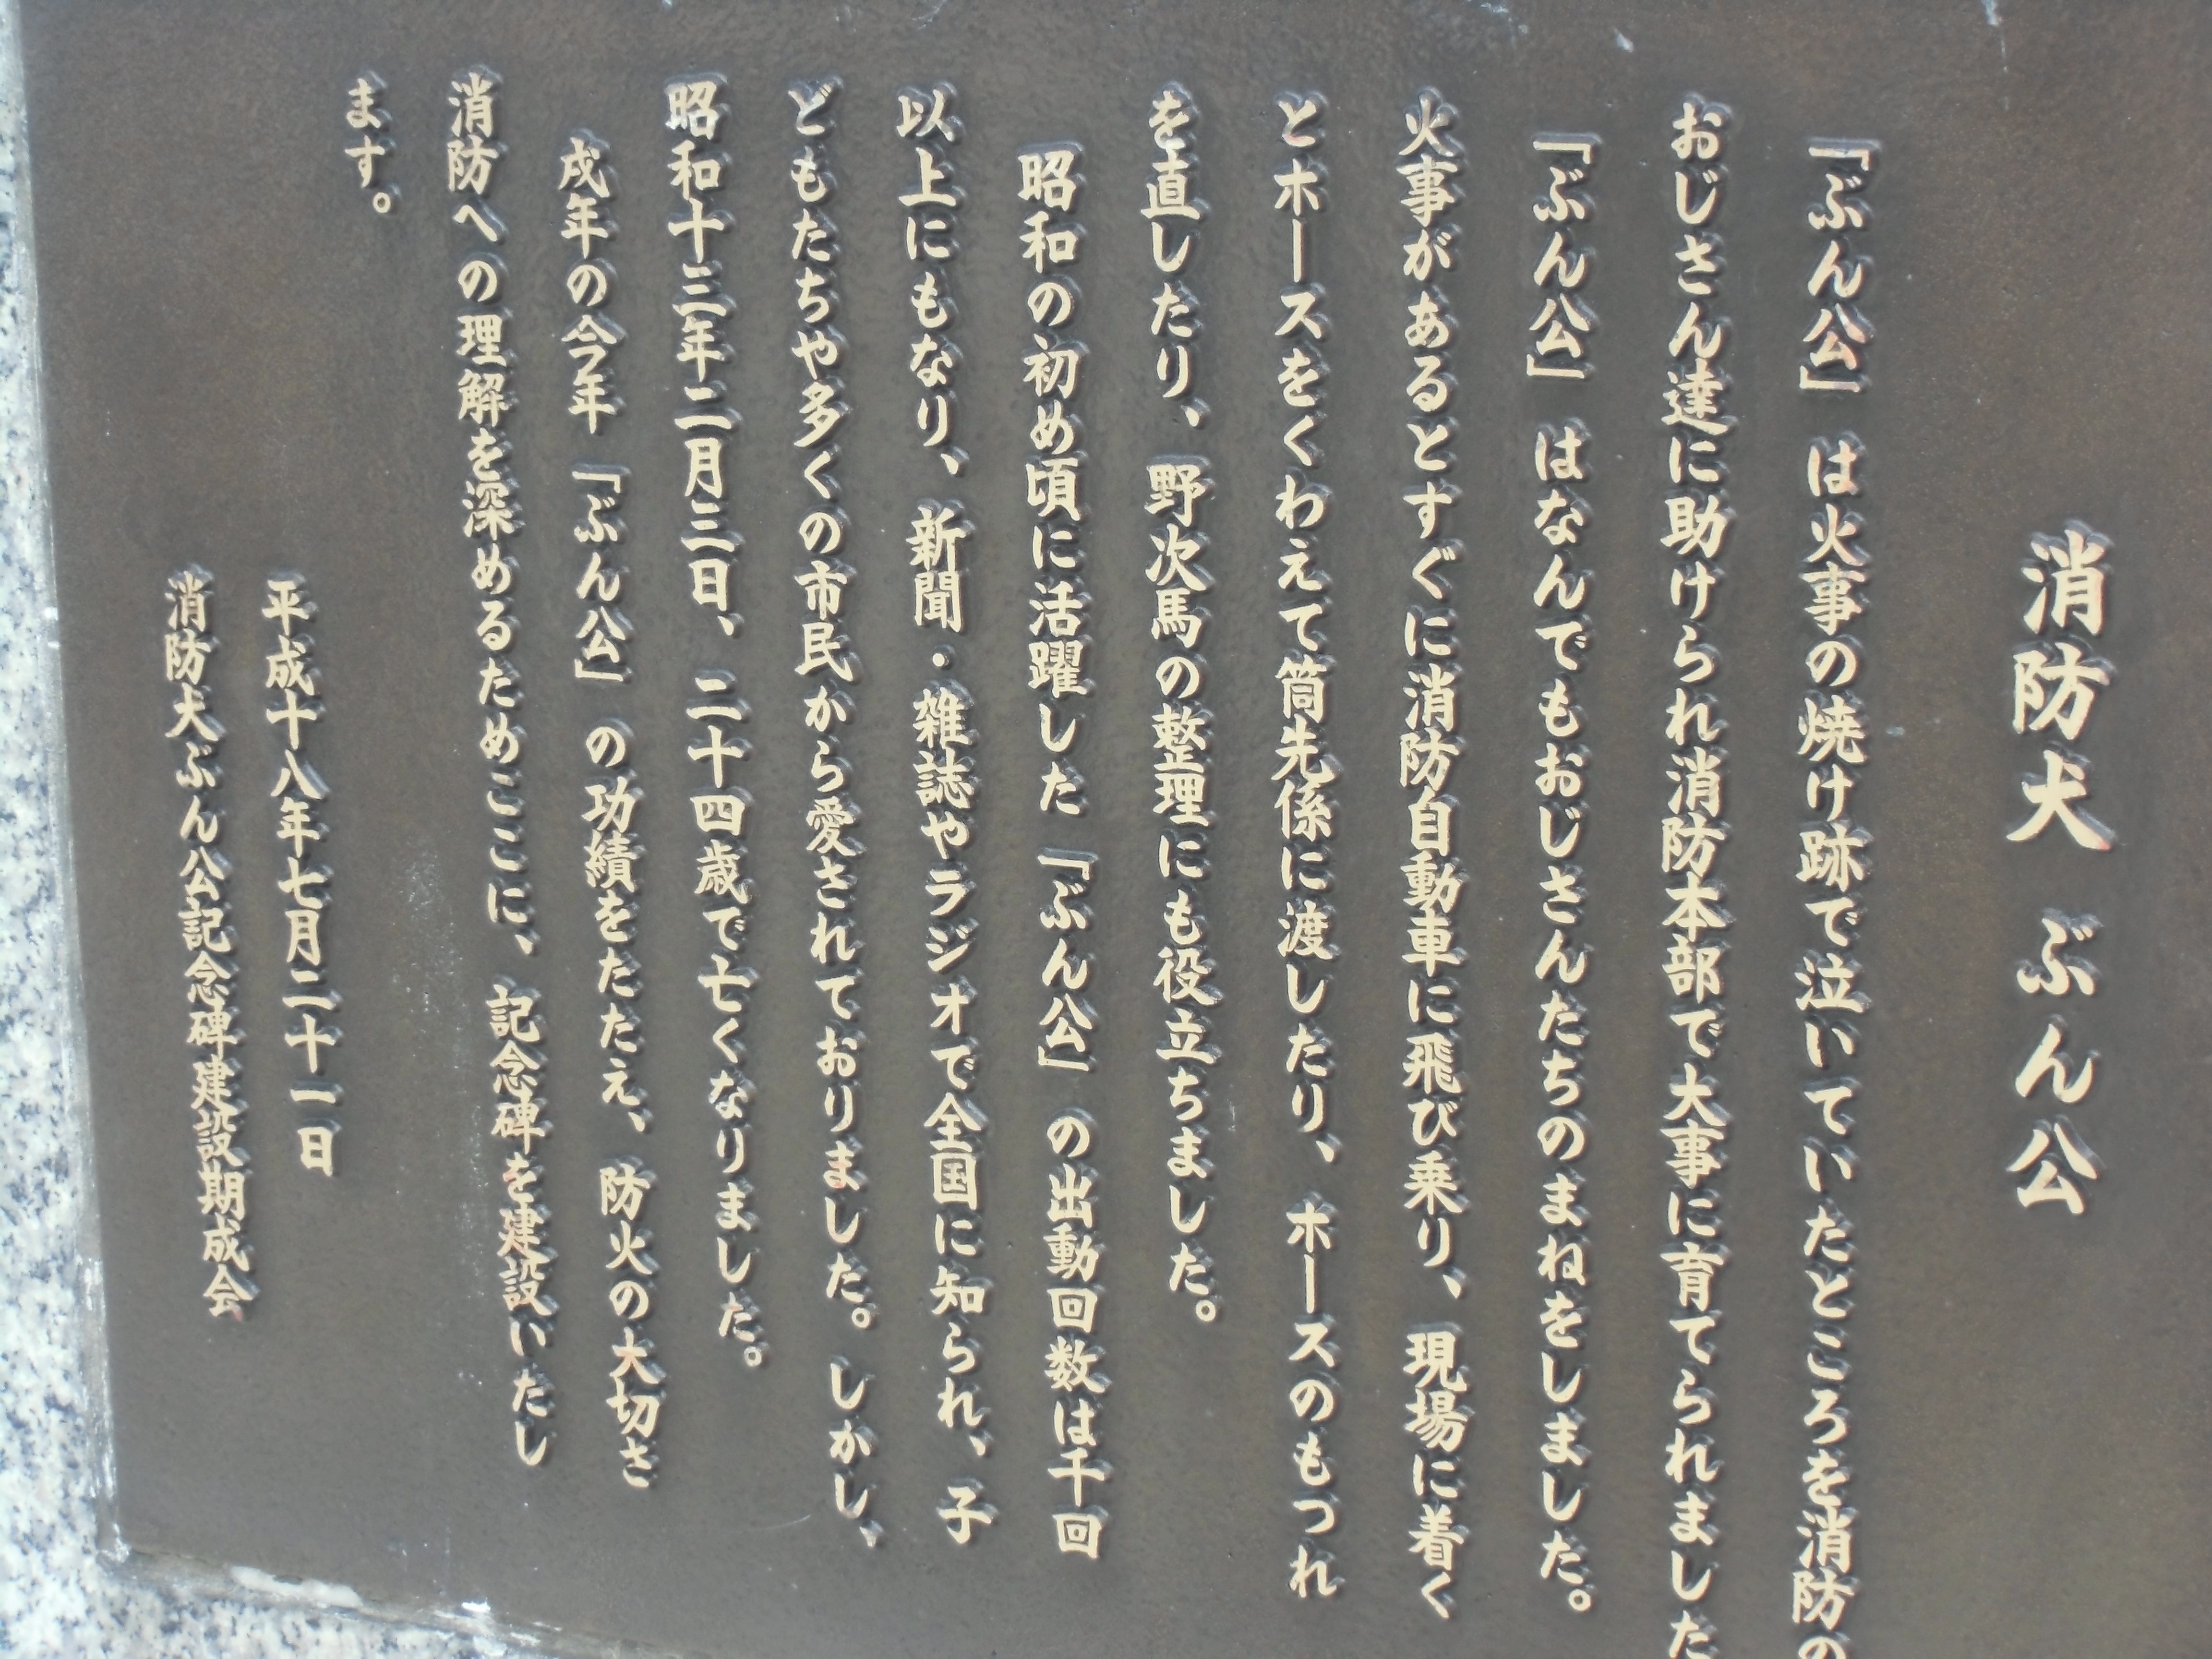 消防犬 ぶん公
「ぶん公」は火事の焼け跡で泣いていたところを消防の
おじさん達に助けられ消防本部で大事に育てられました
「ぶん公」はなんでもおじさんたちのまねをしました。
火事があるとすぐに消防自動車に飛び乗り、現場に着く
とホースをくわえて筒先係に渡したり、ホースのもつれ
を直したり、野次馬の整理にも役立ちました。
昭和の初め頃に活躍した「ぶん公」の出動回数は千回
以上にもなり、新聞・雑誌やラジオで全国に知られ、子
どもたちや多くの市民から愛されておりました。しかし、
昭和十三年二月三日、二十四歳で亡くなりました。
戌年の今年「ぶん公」の功績をたたえ、防火の大切さ
消防への理解を深めるためここに、記念碑を建設いたし
ます。
平成十八年七月二十一日
消防犬ぶん公記念碑建設期成会